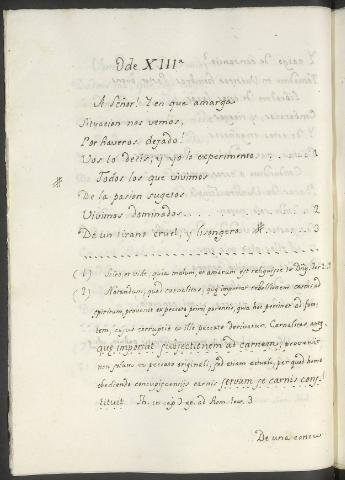 Ode XIIIª
A Señor! Y en que amarga
Situacion nos vemos,
Por haveros dejado!
Vos lo decis, y yo lo experimento. . . . 1
Todos los que vivimos
De la pasion sugetos
Vivimos dominados. . . . . . . . . . 2
De un tirano cruel, y lisongero . . . 3
(1) Scito, et vide, quia malum, et amarum est reliquisse te Dnm. Ier. 2.
(2) Notandum, quod carnalitas, quæ importat rebellionem carnis ad
spiritum, provenit ex peccato primi parentis, quia hoc pertinet ad fom
tem, cujus corruptio ex illo peccato derivatur. Carnalitas, autem
quæ importat subjectionem ad carnem, provenit
non solum ex peccato originali, sed etiam actuali, per quod homo
obediendo concupiscentiis carnis servum se carnis cons
tituit. Th. in cap. 7. ep. ad Rom. lec. 3
De una